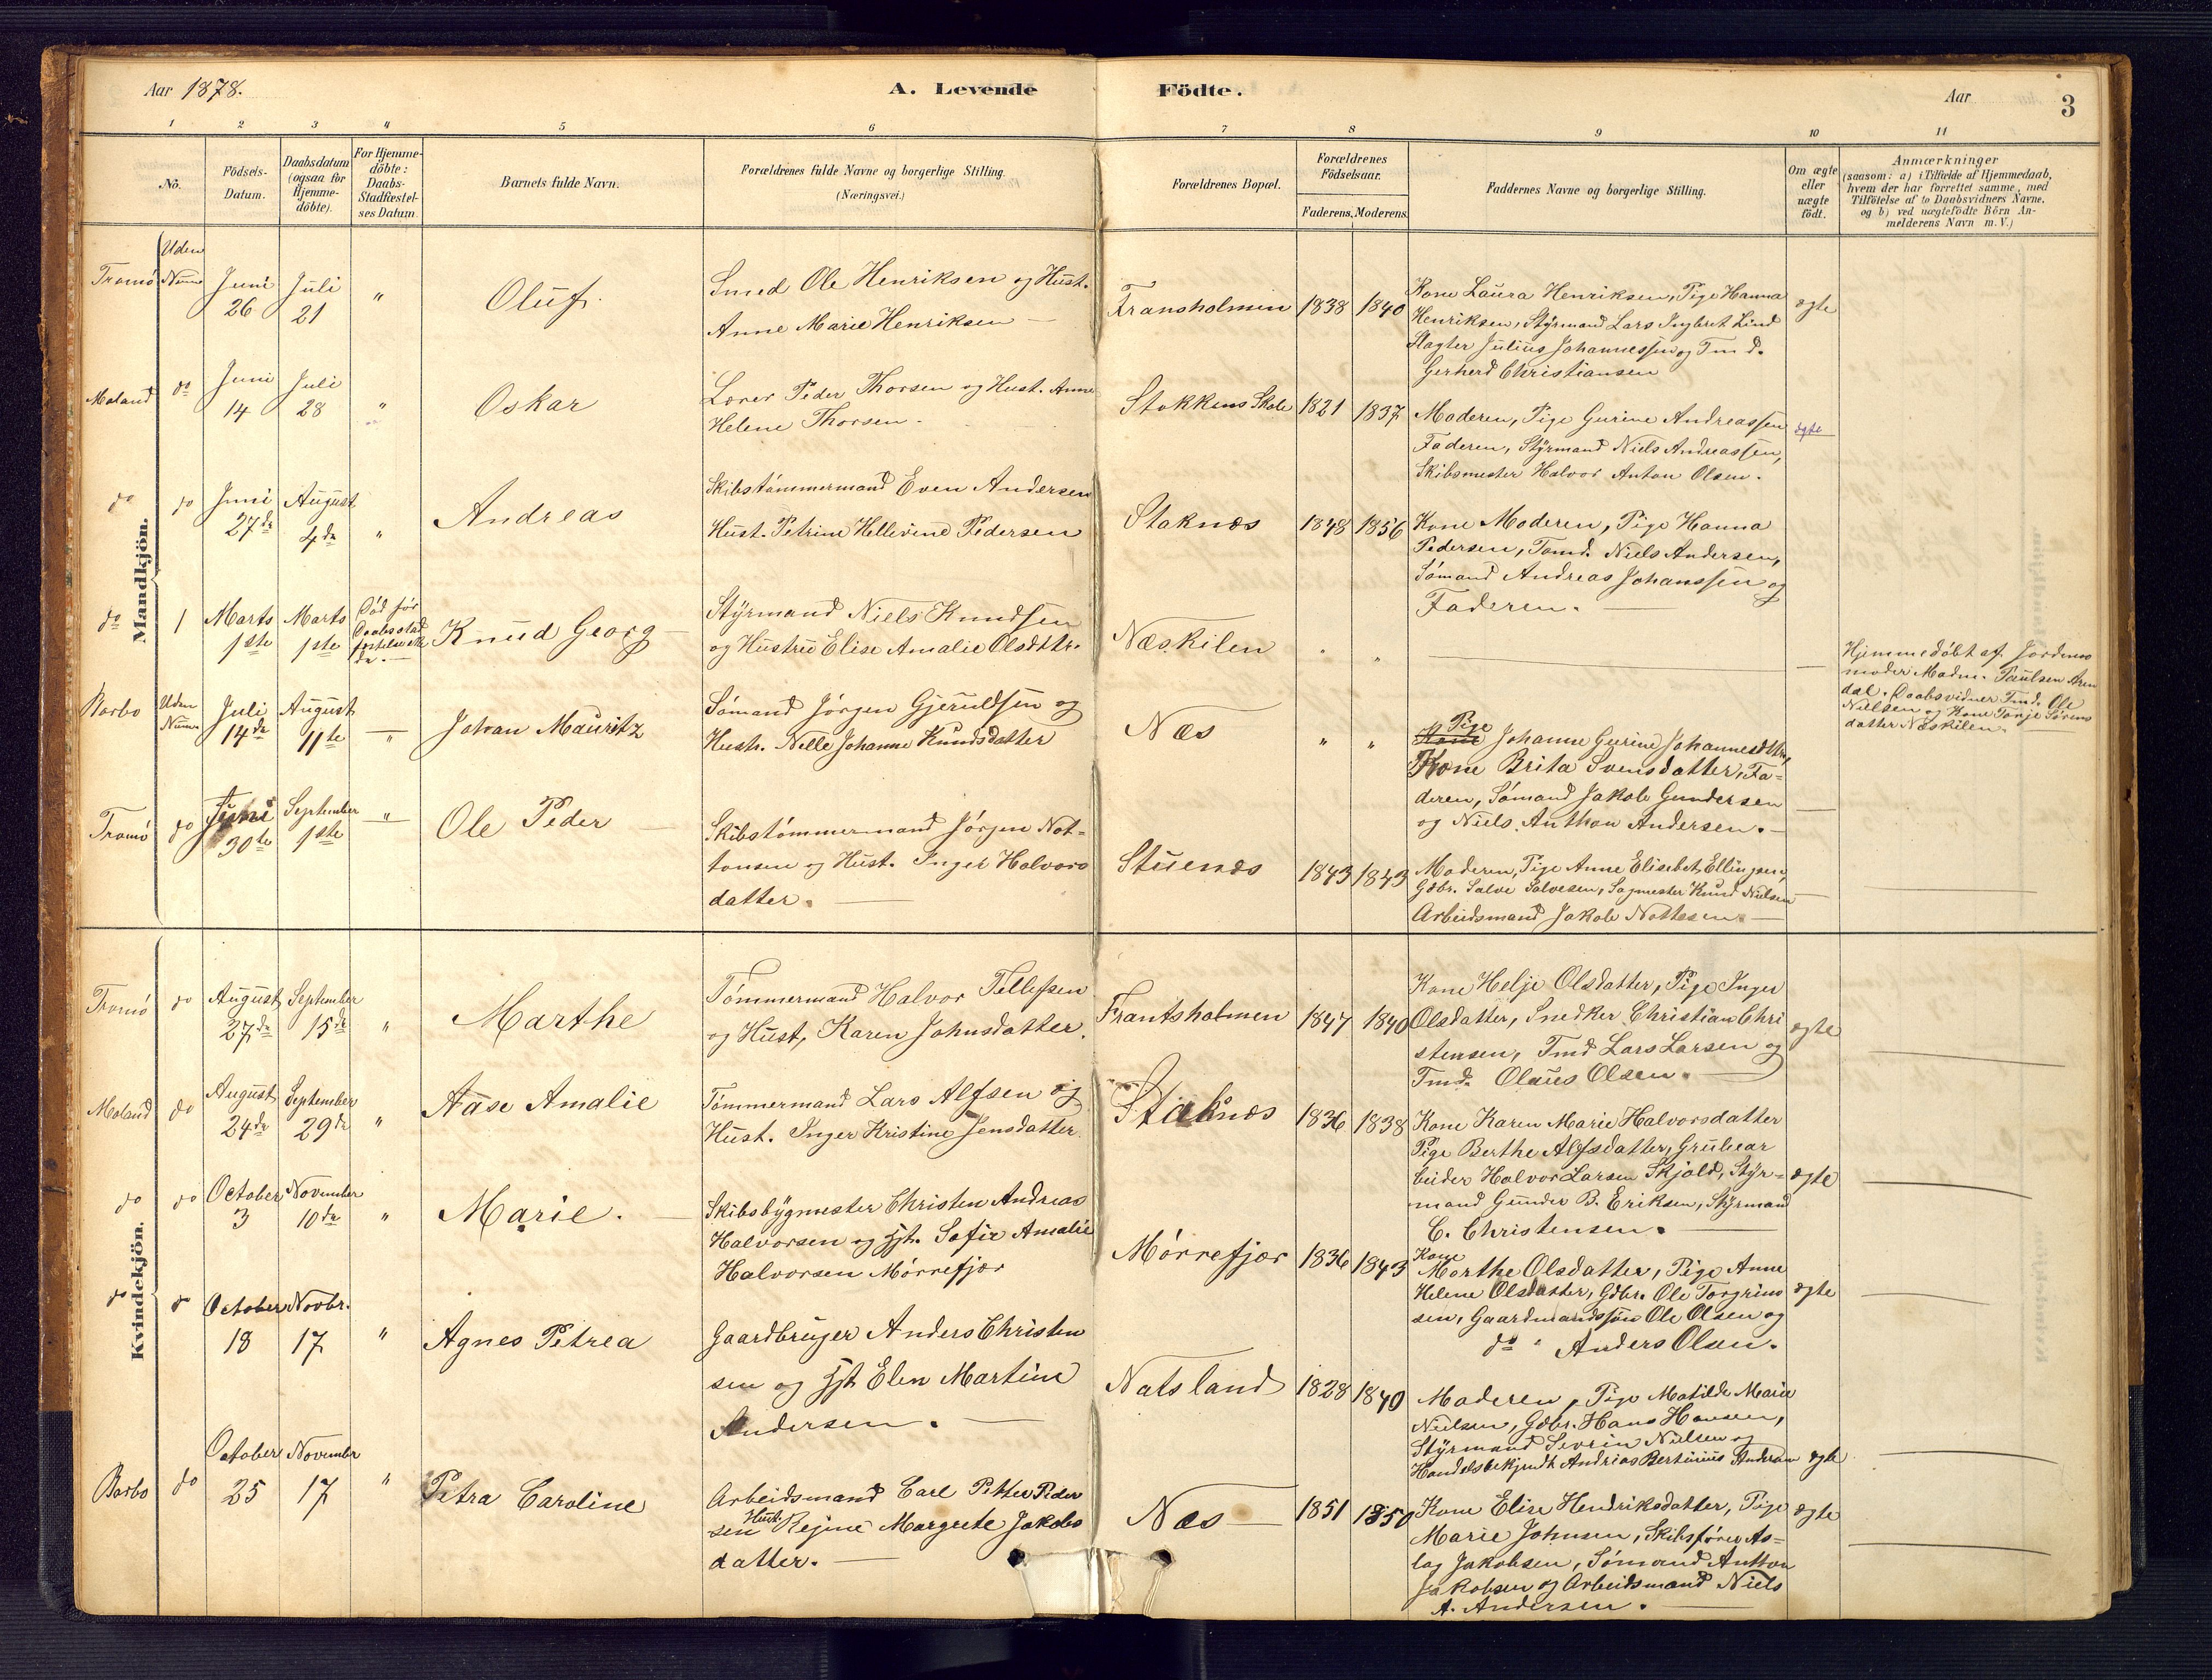 Aar 1878.
A. Levende
Födte.
Aar
3
1 2 3 4 5 6 7 8 9 10 11
No.
Födsels-
Datum.
Daabsdatum
(ogsaa for
Hjemme-
döbte).
For Hjemme-
döbte:
Daabs-
Stadfæstel-
ses Datum.
Barnets fulde Navn.
Forældrenes fulde Navne og borgerlige Stilling.
(Næringsvei.)
Forældrenes Bopæl.
Forældrenes
Födselsaar.
Faderens. Moderens.
Faddernes Navne og borgerlige Stilling.
Om ægte
eller
uægte
födt.
Anmærkninger
(saasom: a) i Tilfælde af Hjemmedaab,
hvem der har forrettet samme, med
Tilföielse af to Daabsvidners Navne.
og b) ved uægtefödte Börn An-
melderens Navn m. V.)
Mandkjön.
Tromö
Uden
Numr
Juni
26
Juli
21
"
Oluf.
Smed Ole Henriksen og Hust.
Anne Marie Henriksen —
Fransholmen
1838
1840
Kone Laura Henriksen, Pige Hanna
Henriksen, Styrmand Lars Ingbret Lind
Slagter Julius Johannessen og Tmd.
Gerherd Christiansen
ægte
Moland
do
Juni
14
Juli
28
"
Oskar
Lærer Peder Thorsen og Hust. Anne
Helene Thorsen.
Stokkens Skole
1821
1837
Moderen, Pige Gurine Andreassen
Faderen, Styrmand Niels Andreassen,
Skibsmester Halvor Anton Olsen.
ægte
do
do
Juni
27de
August
4de
"
Andreas
Skibstömmermand Even Andersen
Hust. Petrine Hellevine Pedersen
Staknæs
1848
1856
Kone Moderen, Pige Hanna
Pedersen, Tømd. Niels Andersen,
Sömand Andreas Johanssen og
Faderen. —
do
1
Marts
1ste
Marts
1ste
Död för
Daabsstad
Knud Georg —
Styrmand Niels Knudsen
og Hustru Elise Amalie Olsdttr.
Næskilen
"
"
Hjemmedöbt af Jordemo
moder Madm. Paulsen Aren
dal. Daabsvidner Tmd. Ole
Nielsen og Kone Tonje Sörens
datter Næskilen.
Barbo
Uden
Numr
Juli
14de
August
11te
"
Johan Mauritz
Sömand Jörgen Gjeruldsen og
Hust. Nille Johanne Knudsdatter
Næs
"
"
Pige
Kone Johanne Gurine Johannesdttr,
Kone Brita Svensdatter, Fa-
deren, Sömand Jakob Gundersen
og Niels Anthon Andersen. —
Tromö
do
Juni
30te
September
1ste
"
Ole Peder
Skibstömmermand Jörgen Not-
tonsen og Hust. Inger Halvors
datter. —
Stuenæs
1843
1843
Moderen, Pige Anne Elisebet Ellingsen,
Gdbr. Salve Salvesen, Sagmester Knud Nielsen
Arbeidsmand Jakob Nottesen. —
Kvindekjön.
Tromö
do
August
27de
September
15de
"
Marthe
Tömmermand Halvor Tellefsen
og Hust, Karen Johnsdatter.
Frantsholmen
1847
1840
Kone Helje Olsdatter, Pige Inger
Olsdatter, Snedker Christian Chri
stensen, Tmd Lars Larsen og
Tmd. Olaus Olsen. —
ægte
Moland
do
August
24de
September
29de
"
Aase Amalie
Tömmermand Lars Alfsen og
Hust. Inger Kristine Jensdatter.
Staknæs
1836
1838
Kone Karen Marie Halvorsdatter
Pige Berthe Alfsdatter, Grubear
beider Halvor Larsen Skjold, Styr-
mand Gunder B. Eriksen, Styrmand
C. Christensen. —
ægte
do
do
October
3
November
10de
"
Marie. —
Skibsbygmester Christen Andreas
Halvorsen og Hst. Sofie Amalie
Halvorsen Mörrefjær
Mörrefjær
1836
1843
Kone
Marthe Olsdatter, Pige Anne
Helene Olsdatter, Gdbr. Ole Torgrims
sen, Gaardmandssön Ole Olsen og
do " Anders Olsen.
ægte
do
do
October
18
Novbr.
17
"
Agnes Petrea
Gaardbruger Anders Christen
sen og Hst. Elen Martine
Andersen. —
Natsland
1828
1840
Moderen, Pige Matilde Marie
Nielsen, Gdbr. Hans Hansen,
Styrmand Severin Nielsen og
Handelsbetjendt Andreas Bertinius Andersen
ægte
Barbo
do
October
25
November
17
"
Petra Caroline
Arbeidsmand Carl Petter Peder
sen Hust. Rejine Margrete Jakobs
datter. —
Næs —
1851
1850
Kone Elise Hendriksdatter, Pige
Marie Johnsen, Skibsförer As-
lag Jakobsen, Sömand Anthon
Jakobsen og Arbeidsmand Niels
A. Andersen. —
ægte